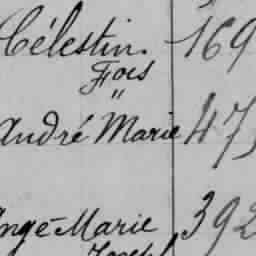 Célestin 169
Fois
"
André Marie 475
Ange-Marie 392
Joseph